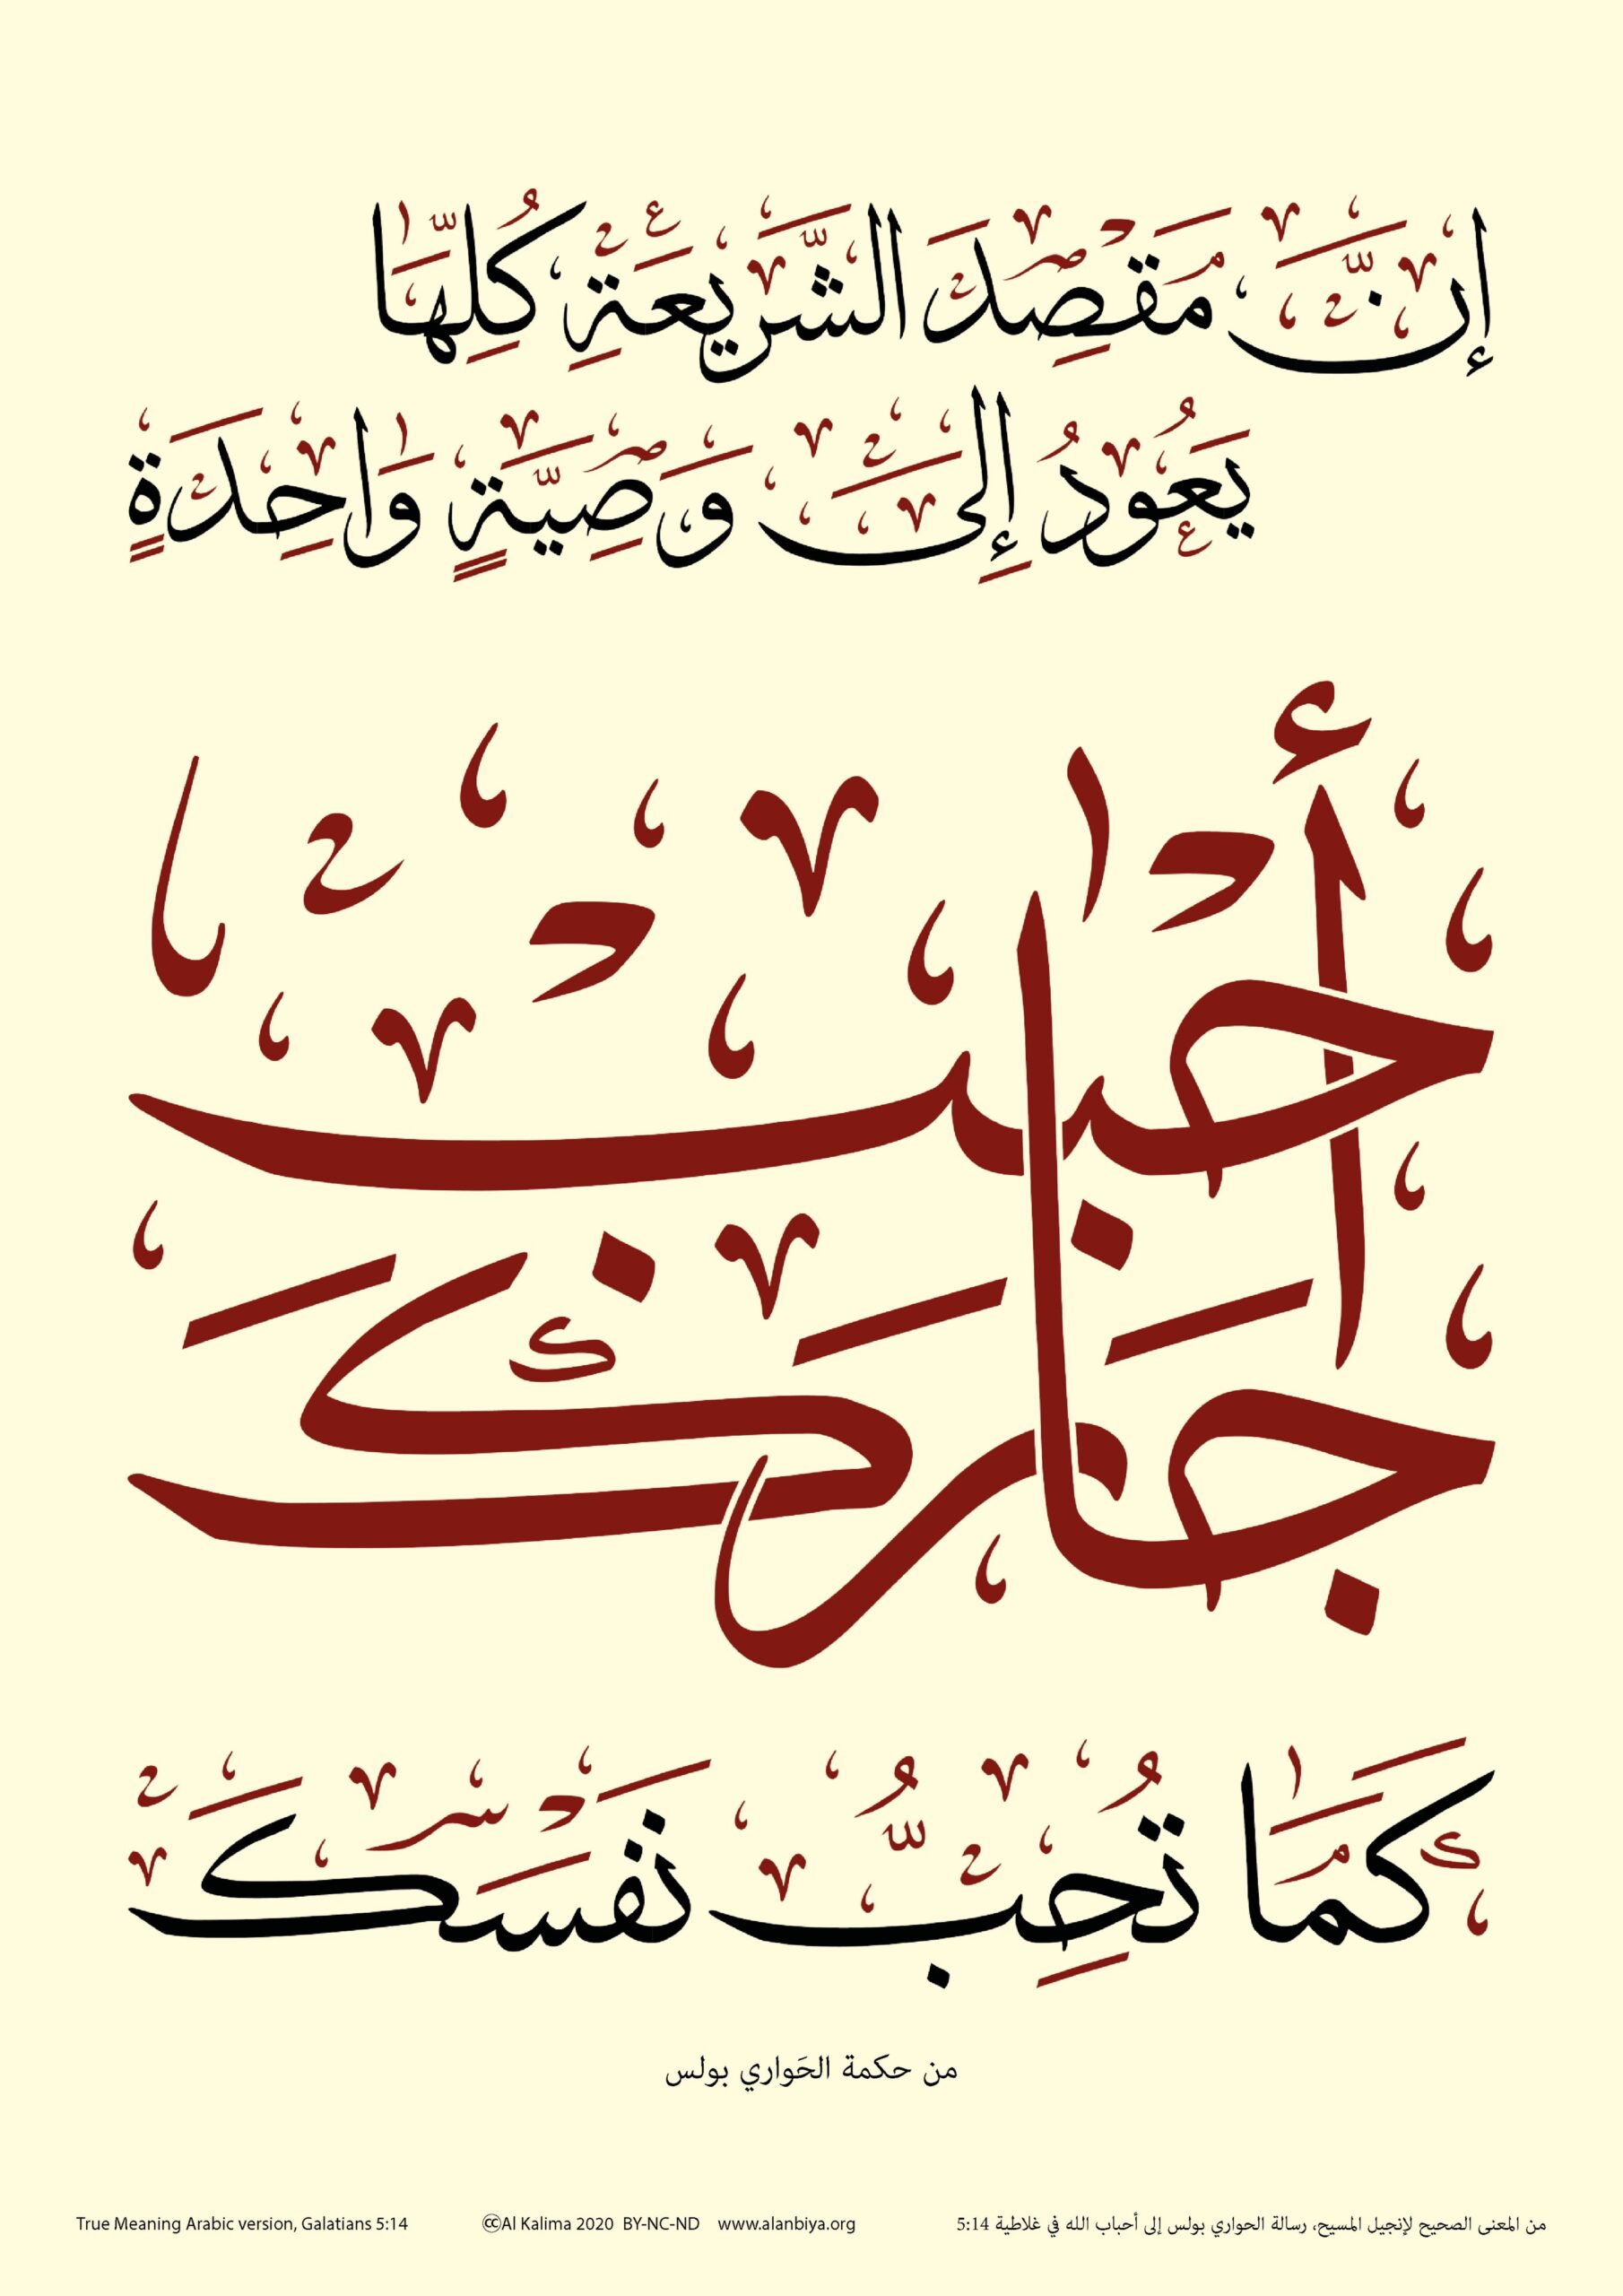 إِنَّ مَقْصِدَ الشَّرِيعَةِ كُلِّهَا
يَعُودُ إِلَى وَصِيَّةٍ وَاحِدَةٍ
أَحْبِبْ
جَارَكَ
كَمَا تُحِبُّ نَفْسَكَ
من حكمة الحَواري بولس
True Meaning Arabic version, Galatians 5:14
🄭Al Kalima 2020 BY-NC-ND www.alanbiya.org
من المعنى الصحيح لإنجيل المسيح، رسالة الحواري بولس إلى أحباب الله في غلاطية 5:14